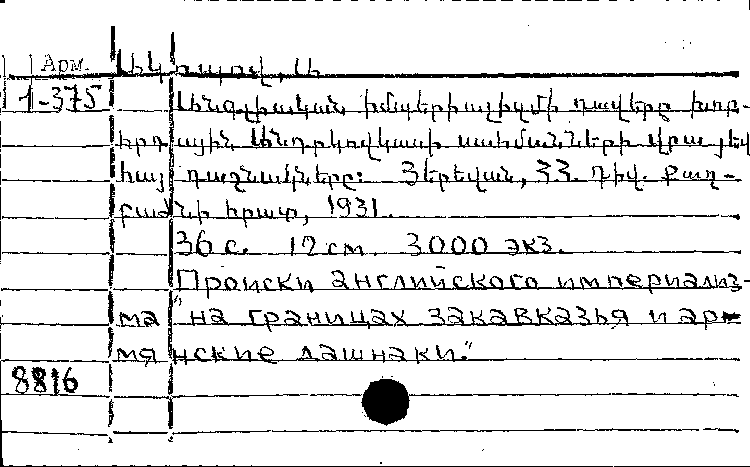 Арм. Ակոպով, Ս
1-375 Անգլիական իմպերիալիզմի դավերը խոր-
հրդային Անդրկովկասի սահմանների վրա յեվ
հայ դաշնակները: Յերեվան, ՅՅ. Դիվ. Քաղ-
բաժնի հրատ, 1931.
36 с. 17 см. 3000 экз.
Происки английского империализ-
ма "на границах закавказья и ар-
мянские дашнаки."
8816